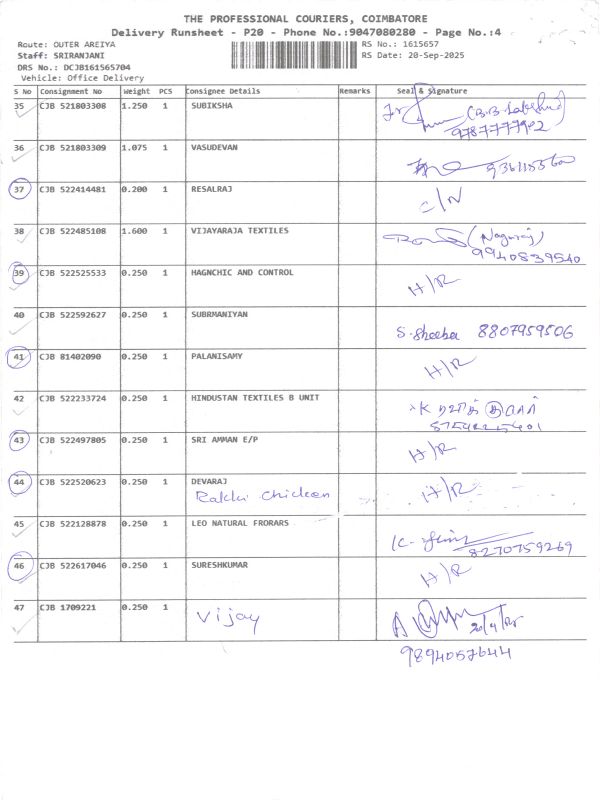 THE PROFESSIONAL COURIERS, COIMBATORE
Delivery Runsheet - P20 - Phone No.:9047080280 - Page No.:4
Route: OUTER AREIYA RS No.: 1615657
Staff: SRIRANJANI RS Date: 20-Sep-2025
DRS No.: DCJB161565704
Vehicle: Office Delivery
S No Consignment No Weight PCS Consignee Details Remarks Seal & Signature
35 CJB 521803308 1.250 1 SUBIKSHA For
9787777902
36 CJB 521803309 1.075 1 VASUDEVAN
37 CJB 522414481 0.200 1 RESALRAJ C/N
38 CJB 522485108 1.600 1 VIJAYARAJA TEXTILES (Nagaraj)
9940839540
39 CJB 522525533 0.250 1 HAGNCHIC AND CONTROL H/R
40 CJB 522592627 0.250 1 SUBRMANIYAN
S. Sheeba 8807959506
41 CJB 81402090 0.250 1 PALANISAMY H/R
42 CJB 522233724 0.250 1 HINDUSTAN TEXTILES B UNIT
43 CJB 522497805 0.250 1 SRI AMMAN E/P H/R
44 CJB 522520623 0.250 1 DEVARAJ H/R
Rakki Chicken
45 CJB 522128878 0.250 1 LEO NATURAL FRORARS
8270759269
46 CJB 522617046 0.250 1 SURESHKUMAR H/R
47 CJB 1709221 0.250 1 Vijay
9894057644